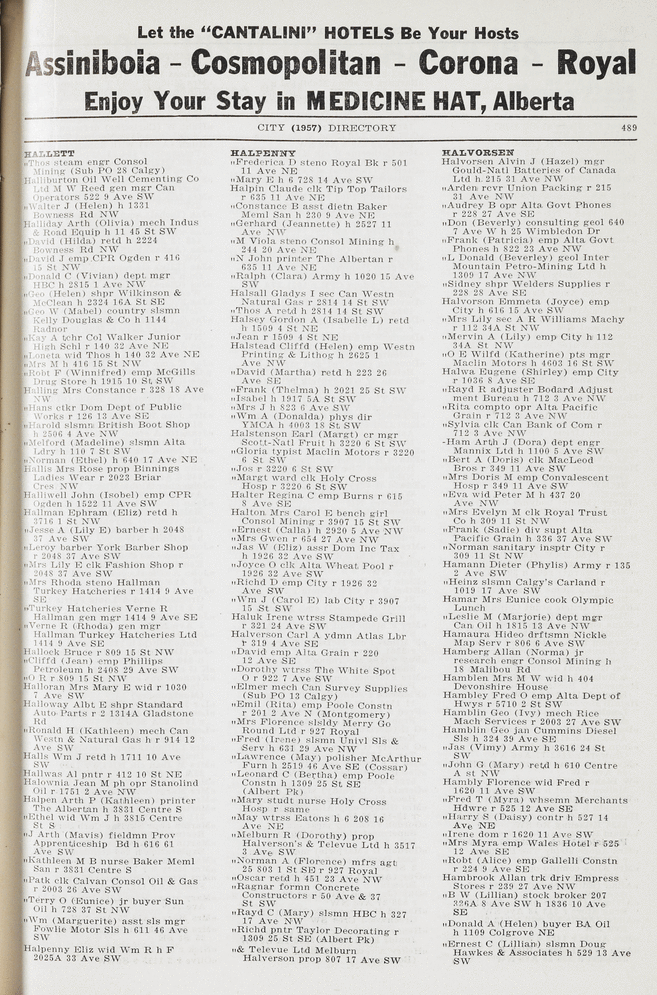 Let the "CANTALINI" HOTELS Be Your Hosts
Assiniboia - Cosmopolitan - Corona - Royal
Enjoy Your Stay in MEDICINE HAT, Alberta
CITY (1957) DIRECTORY 489
HALLETT
"Thos steam engr Consol
Mining (Sub PO 28 Calgy)
Halliburton Oil Well Cementing Co
Ltd M W Reed gen mgr Can
Operators 522 9 Ave SW
"Walter J (Helen) h 1331
Bowness Rd NW
Halliday Arth (Olivia) mech Indus
& Road Equip h 11 45 St SW
"David (Hilda) retd h 2224
Bowness Rd NW
"David J emp CPR Ogden r 416
15 St NW
"Donald C (Vivian) dept mgr
HBC h 2815 1 Ave NW
"Geo (Helen) shpr Wilkinson &
McClean h 2324 16A St SE
"Geo W (Mabel) country slsmn
Kelly Douglas & Co h 1144
Radnor
"Kay A tchr Col Walker Junior
High Schl r 140 32 Ave NE
"Loneta wid Thos h 140 32 Ave NE
"Mrs M h 416 15 St NW
"Robt F (Winnifred) emp McGills
Drug Store h 1915 10 St SW
Halling Mrs Constance r 328 18 Ave
NW
"Hans ctkr Dom Dept of Public
Works r 126 13 Ave SE
"Harold slsmn British Boot Shop
h 2506 4 Ave NW
"Melford (Madeline) slsmn Alta
Ldry h 110 7 St SW
"Norman (Ethel) h 640 17 Ave NE
Hallis Mrs Rose prop Binnings
Ladies Wear r 2023 Briar
Cres NW
Halliwell John (Isobel) emp CPR
Ogden h 1522 11 Ave SW
Hallman Ephram (Eliz) retd h
3716 1 St NW
"Jesse A (Lily E) barber h 2048
37 Ave SW
"Leroy barber York Barber Shop
r 2048 37 Ave SW
"Mrs Lily E clk Fashion Shop r
2048 37 Ave SW
"Mrs Rhoda steno Hallman
Turkey Hatcheries r 1414 9 Ave
SE
"Turkey Hatcheries Verne R
Hallman gen mgr 1414 9 Ave SE
"Verne R (Rhoda) gen mgr
Hallman Turkey Hatcheries Ltd
1414 9 Ave SE
Hallock Bruce r 809 15 St NW
"Cliffd (Jean) emp Phillips
Petroleum h 2408 29 Ave SW
"O R r 809 15 St NW
Halloran Mrs Mary E wid r 1030
7 Ave SW
Halloway Albt E shpr Standard
Auto Parts r 2 1314A Gladstone
Rd
"Ronald H (Kathleen) mech Can
Westn & Natural Gas h r 914 12
Ave SW
Halls Wm J retd h 1711 10 Ave
SW
Hallwas Al pntr r 412 10 St NE
Halownia Jean M ph opr Stanolind
Oil r 1751 2 Ave NW
Halpen Arth P (Kathleen) printer
The Albertan h 3831 Centre S
"Ethel wid Wm J h 3815 Centre
St S
"J Arth (Mavis) fieldmn Prov
Apprenticeship Bd h 616 61
Ave SW
"Kathleen M B nurse Baker Meml
San r 3831 Centre S
"Patk clk Calvan Consol Oil & Gas
r 2003 26 Ave SW
"Terry O (Eunice) jr buyer Sun
Oil h 728 37 St NW
"Wm (Marguerite) asst sls mgr
Fowlie Motor Sls h 611 46 Ave
SW
Halpenny Eliz wid Wm R h F
2025A 33 Ave SW
HALPENNY
"Frederica D steno Royal Bk r 501
11 Ave NE
"Mary E h 6 728 14 Ave SW
Halpin Claude clk Tip Top Tailors
r 635 11 Ave NE
"Constance B asst dietn Baker
Meml San h 230 9 Ave NE
"Gerhard (Jeannette) h 2527 11
Ave NW
"M Viola steno Consol Mining h
244 20 Ave NE
"N John printer The Albertan r
635 11 Ave NE
"Ralph (Clara) Army h 1020 15 Ave
SW
Halsall Gladys I sec Can Westn
Natural Gas r 2814 14 St SW
"Thos A retd h 2814 14 St SW
Halsey Gordon A (Isabelle L) retd
h 1509 4 St NE
"Jean r 1509 4 St NE
Halstead Cliffd (Helen) emp Westn
Printing & Lithog h 2625 1
Ave NW
"David (Martha) retd h 223 26
Ave SE
"Frank (Thelma) h 2021 25 St SW
"Isabel h 1917 5A St SW
"Mrs J h 823 6 Ave SW
"Wm A (Donalda) phys dir
YMCA h 4003 18 St SW
Halstenson Earl (Margt) cr mgr
Scott-Natl Fruit h 3220 6 St SW
"Gloria typist Maclin Motors r 3220
6 St SW
"Jos r 3220 6 St SW
"Margt ward clk Holy Cross
Hosp r 3220 6 St SW
Halter Regina C emp Burns r 615
8 Ave SE
Halton Mrs Carol E bench girl
Consol Mining r 3907 15 St SW
"Ernest (Calla) h 2920 5 Ave NW
"Mrs Gwen r 654 27 Ave NW
"Jas W (Eliz) assr Dom Inc Tax
h 1926 32 Ave SW
"Joyce O clk Alta Wheat Pool r
1926 32 Ave SW
"Richd D emp City r 1926 32
Ave SW
"Wm J (Carol E) lab City r 3907
15 St SW
Haluk Irene wtrss Stampede Grill
r 321 24 Ave SW
Halverson Carl A ydmn Atlas Lbr
r 319 4 Ave SE
"David emp Alta Grain r 220
12 Ave SE
"Dorothy wtrss The White Spot
O r 922 7 Ave SW
"Elmer mech Can Survey Supplies
(Sub PO 13 Calgy)
"Emil (Rita) emp Poole Constn
r 201 2 Ave N (Montgomery)
"Mrs Florence slsldy Merry Go
Round Ltd r 927 Royal
"Fred (Irene) slsmn Univl Sls &
Serv h 631 29 Ave NW
"Lawrence (May) polisher McArthur
Furn h 2519 46 Ave SE (Cossar)
"Leonard C (Bertha) emp Poole
Constn h 1309 25 St SE
(Albert Pk)
"Mary studt nurse Holy Cross
Hosp r same
"May wtrss Eatons h 6 208 16
Ave NE
"Melburn R (Dorothy) prop
Halverson's & Televue Ltd h 3517
3 Ave SW
"Norman A (Florence) mfrs agt
25 803 1 St SE r 927 Royal
"Oscar retd h 451 23 Ave NW
"Ragnar formn Concrete
Constructors r 50 Ave & 37
St SW
"Rayd C (Mary) slsmn HBC h 327
17 Ave NW
"Richd pntr Taylor Decorating r
1309 25 St SE (Albert Pk)
"& Televue Ltd Melburn
Halverson prop 807 17 Ave SW
HALVORSEN
Halvorsen Alvin J (Hazel) mgr
Gould-Natl Batteries of Canada
Ltd h 215 31 Ave NW
"Arden rcvr Union Packing r 215
31 Ave NW
"Audrey B opr Alta Govt Phones
r 228 27 Ave SE
"Don (Beverly) consulting geol 640
7 Ave W h 25 Wimbledon Dr
"Frank (Patricia) emp Alta Govt
Phones h 822 23 Ave NW
"L Donald (Beverley) geol Inter
Mountain Petro-Mining Ltd h
1309 17 Ave NW
"Sidney shpr Welders Supplies r
228 28 Ave SE
Halvorson Emmeta (Joyce) emp
City h 616 15 Ave SW
"Mrs Lily sec A R Williams Machy
r 112 34A St NW
"Mervin A (Lily) emp City h 112
34A St NW
"O E Wilfd (Katherine) pts mgr
Maclin Motors h 4603 16 St SW
Halwa Eugene (Shirley) emp City
r 1036 8 Ave SE
"Rayd R adjuster Bodard Adjust
ment Bureau h 712 3 Ave NW
"Rita compto opr Alta Pacific
Grain r 712 3 Ave NW
"Sylvia clk Can Bank of Com r
712 3 Ave NW
-Ham Arth J (Dora) dept engr
Mannix Ltd h 1100 5 Ave SW
"Bert A (Doris) clk MacLeod
Bros r 349 11 Ave SW
"Mrs Doris M emp Convalescent
Hosp r 349 11 Ave SW
"Eva wid Peter M h 437 20
Ave NW
"Mrs Evelyn M clk Royal Trust
Co h 309 11 St NW
"Frank (Sadie) div supt Alta
Pacific Grain h 336 37 Ave SW
"Norman sanitary insptr City r
309 11 St NW
Hamann Dieter (Phylis) Army r 135
2 Ave SW
"Heinz slsmn Calgy's Carland r
1019 17 Ave SW
Hamar Mrs Eunice cook Olympic
Lunch
"Leslie M (Marjorie) dept mgr
Can Oil h 1815 13 Ave NW
Hamaura Hideo drftsmn Nickle
Map Serv r 806 6 Ave SW
Hamberg Allan (Norma) jr
research engr Consol Mining h
18 Malibou Rd
Hamblen Mrs M W wid h 404
Devonshire House
Hambley Fred O emp Alta Dept of
Hwys r 5710 2 St SW
Hamblin Geo (Ivy) mech Rice
Mach Services r 2003 27 Ave SW
Hamblin Geo jan Cummins Diesel
Sls h 324 39 Ave SE
"Jas (Vimy) Army h 3616 24 St
SW
"John G (Mary) retd h 610 Centre
A st NW
Hambly Florence wid Fred r
1620 11 Ave SW
"Fred T (Myra) whsemn Merchants
Hdwre r 525 12 Ave SE
"Harry S (Daisy) contr h 527 14
Ave NE
"Irene dom r 1620 11 Ave SW
"Mrs Myra emp Wales Hotel r 525
12 Ave SE
"Robt (Alice) emp Gallelli Constn
r 224 9 Ave SE
Hambrook Allan trk driv Empress
Stores r 239 27 Ave NW
"B W (Lillian) stock broker 207
326A 8 Ave SW h 1836 10 Ave
SE
"Donald A (Helen) buyer BA Oil
h 1109 Colgrove NE
"Ernest C (Lillian) slsmn Doug
Hawkes & Associates h 529 13 Ave
SW